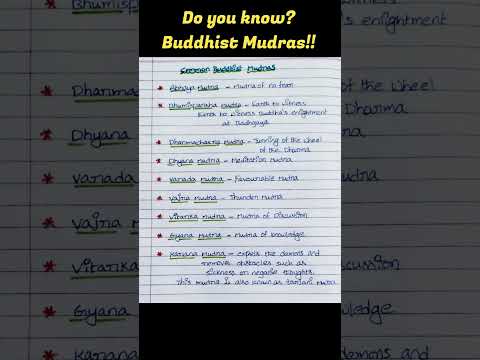 Do you know?
Buddhist Mudras!!
Common Buddhist Mudras
* Abhaya Mudra - Mudra of no fear
* Bhumisparsha Mudra - Earth to Witness
Earth to Witness Buddha's enlightment
at Bodhgaya
* Dharmachakra Mudra - Turning of the Wheel
of the Dharma
* Dhyana Mudra - Meditation Mudra
* Varada Mudra - Favourable Mudra
* Vajra Mudra - Thunder Mudra
* Vitarka Mudra - Mudra of Discussion
* Gyana Mudra - Mudra of knowledge
* Karana Mudra - expels the demons and
removes obstacles such as
sickness or negative thoughts.
This mudra is also known as tarjani Mudra